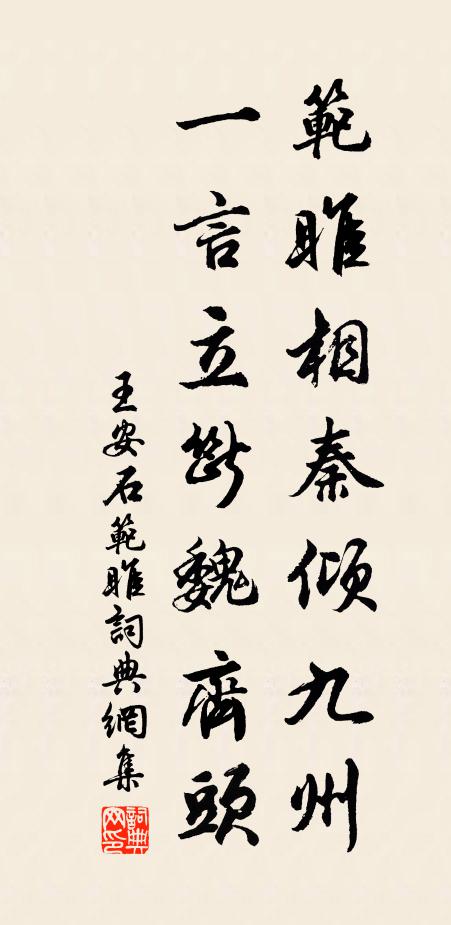 範雎相秦傾九州
一言立斷魏齊頭
王安石範雎詞典網集
詞典
网印